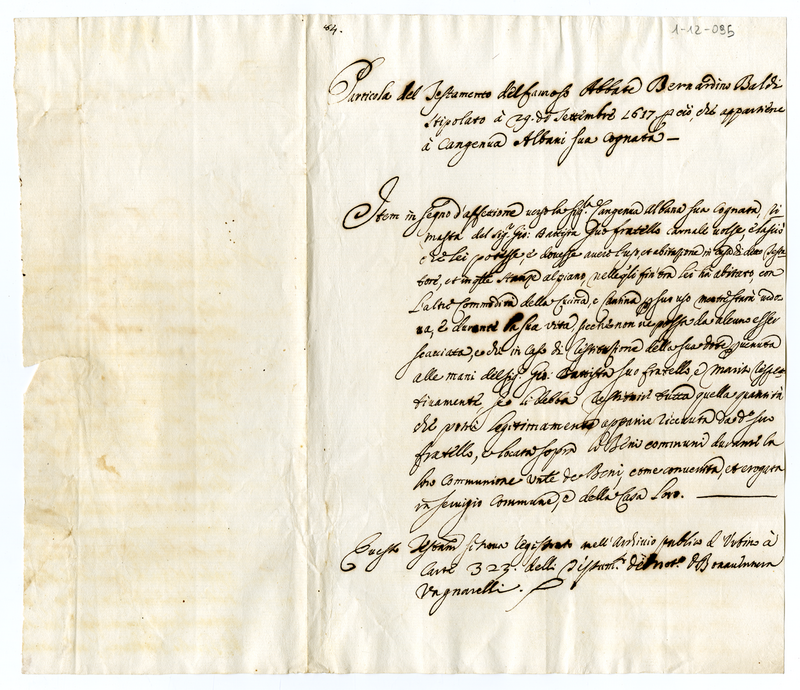 64.
1-12-095
Particola del Testamento del famoso Abbate Bernardino Baldi
Stipolato à 29. di Settembre 1617 p ciò, che appartiene
à Cangenua Albani sua Cognata —
Item in segno d'affezione verso la Sig.ra Cangenua Albana sua Cognata, ri
masta del Sig.r Gio: Battista suo fratello Carnale volse, e lasciò
che lei potesse, e dovesse avere l'uso, et abitazione in Casa di detto Testa
tore, et in stanze al piano, nelle quali fin ora lei ha abitato, con
l'altre Commodità della Cucina, e Cantina p suo uso mentre starà vedo
va, e durante la sua vita, sicche non ne possa da alcuno esser
scacciata, e che in Caso di restituzione della sua dote pervenuta
alle mani del Sig.r Gio: Battista suo fratello, e Marito respet
tivamente se li debba restituire tutta quella quantità
che potrà legitimamente apparire ricevuta da d.o suo
fratello, e locata sopra li Beni communi durante la
loro Communione de Beni, come convertita, et erogata
in servigio Commune, e della Casa loro. —
Questo Testam.to si trova registrato nell'Archivio publico d'Urbino à
Carte 323. delli di Bonaventura
Vagnarelli.